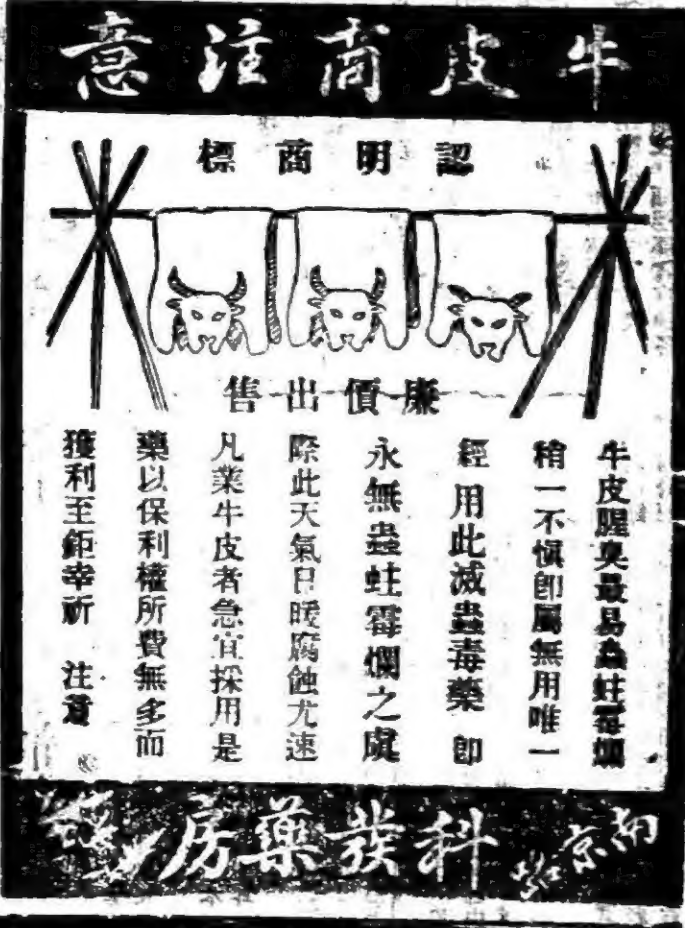 牛皮商注意
認明商標
廉價出售
牛皮腥臭最易蟲蛀霉爛
稍一不慎卽屬無用唯一
經用此滅蟲毒藥 卽
永無蟲蛀霉爛之虞
際此天氣日暖腐蝕尤速
凡業牛皮者急宜採用是
藥以保利權所費無多而
獲利至鉅幸祈 注意
南京路
科發藥房